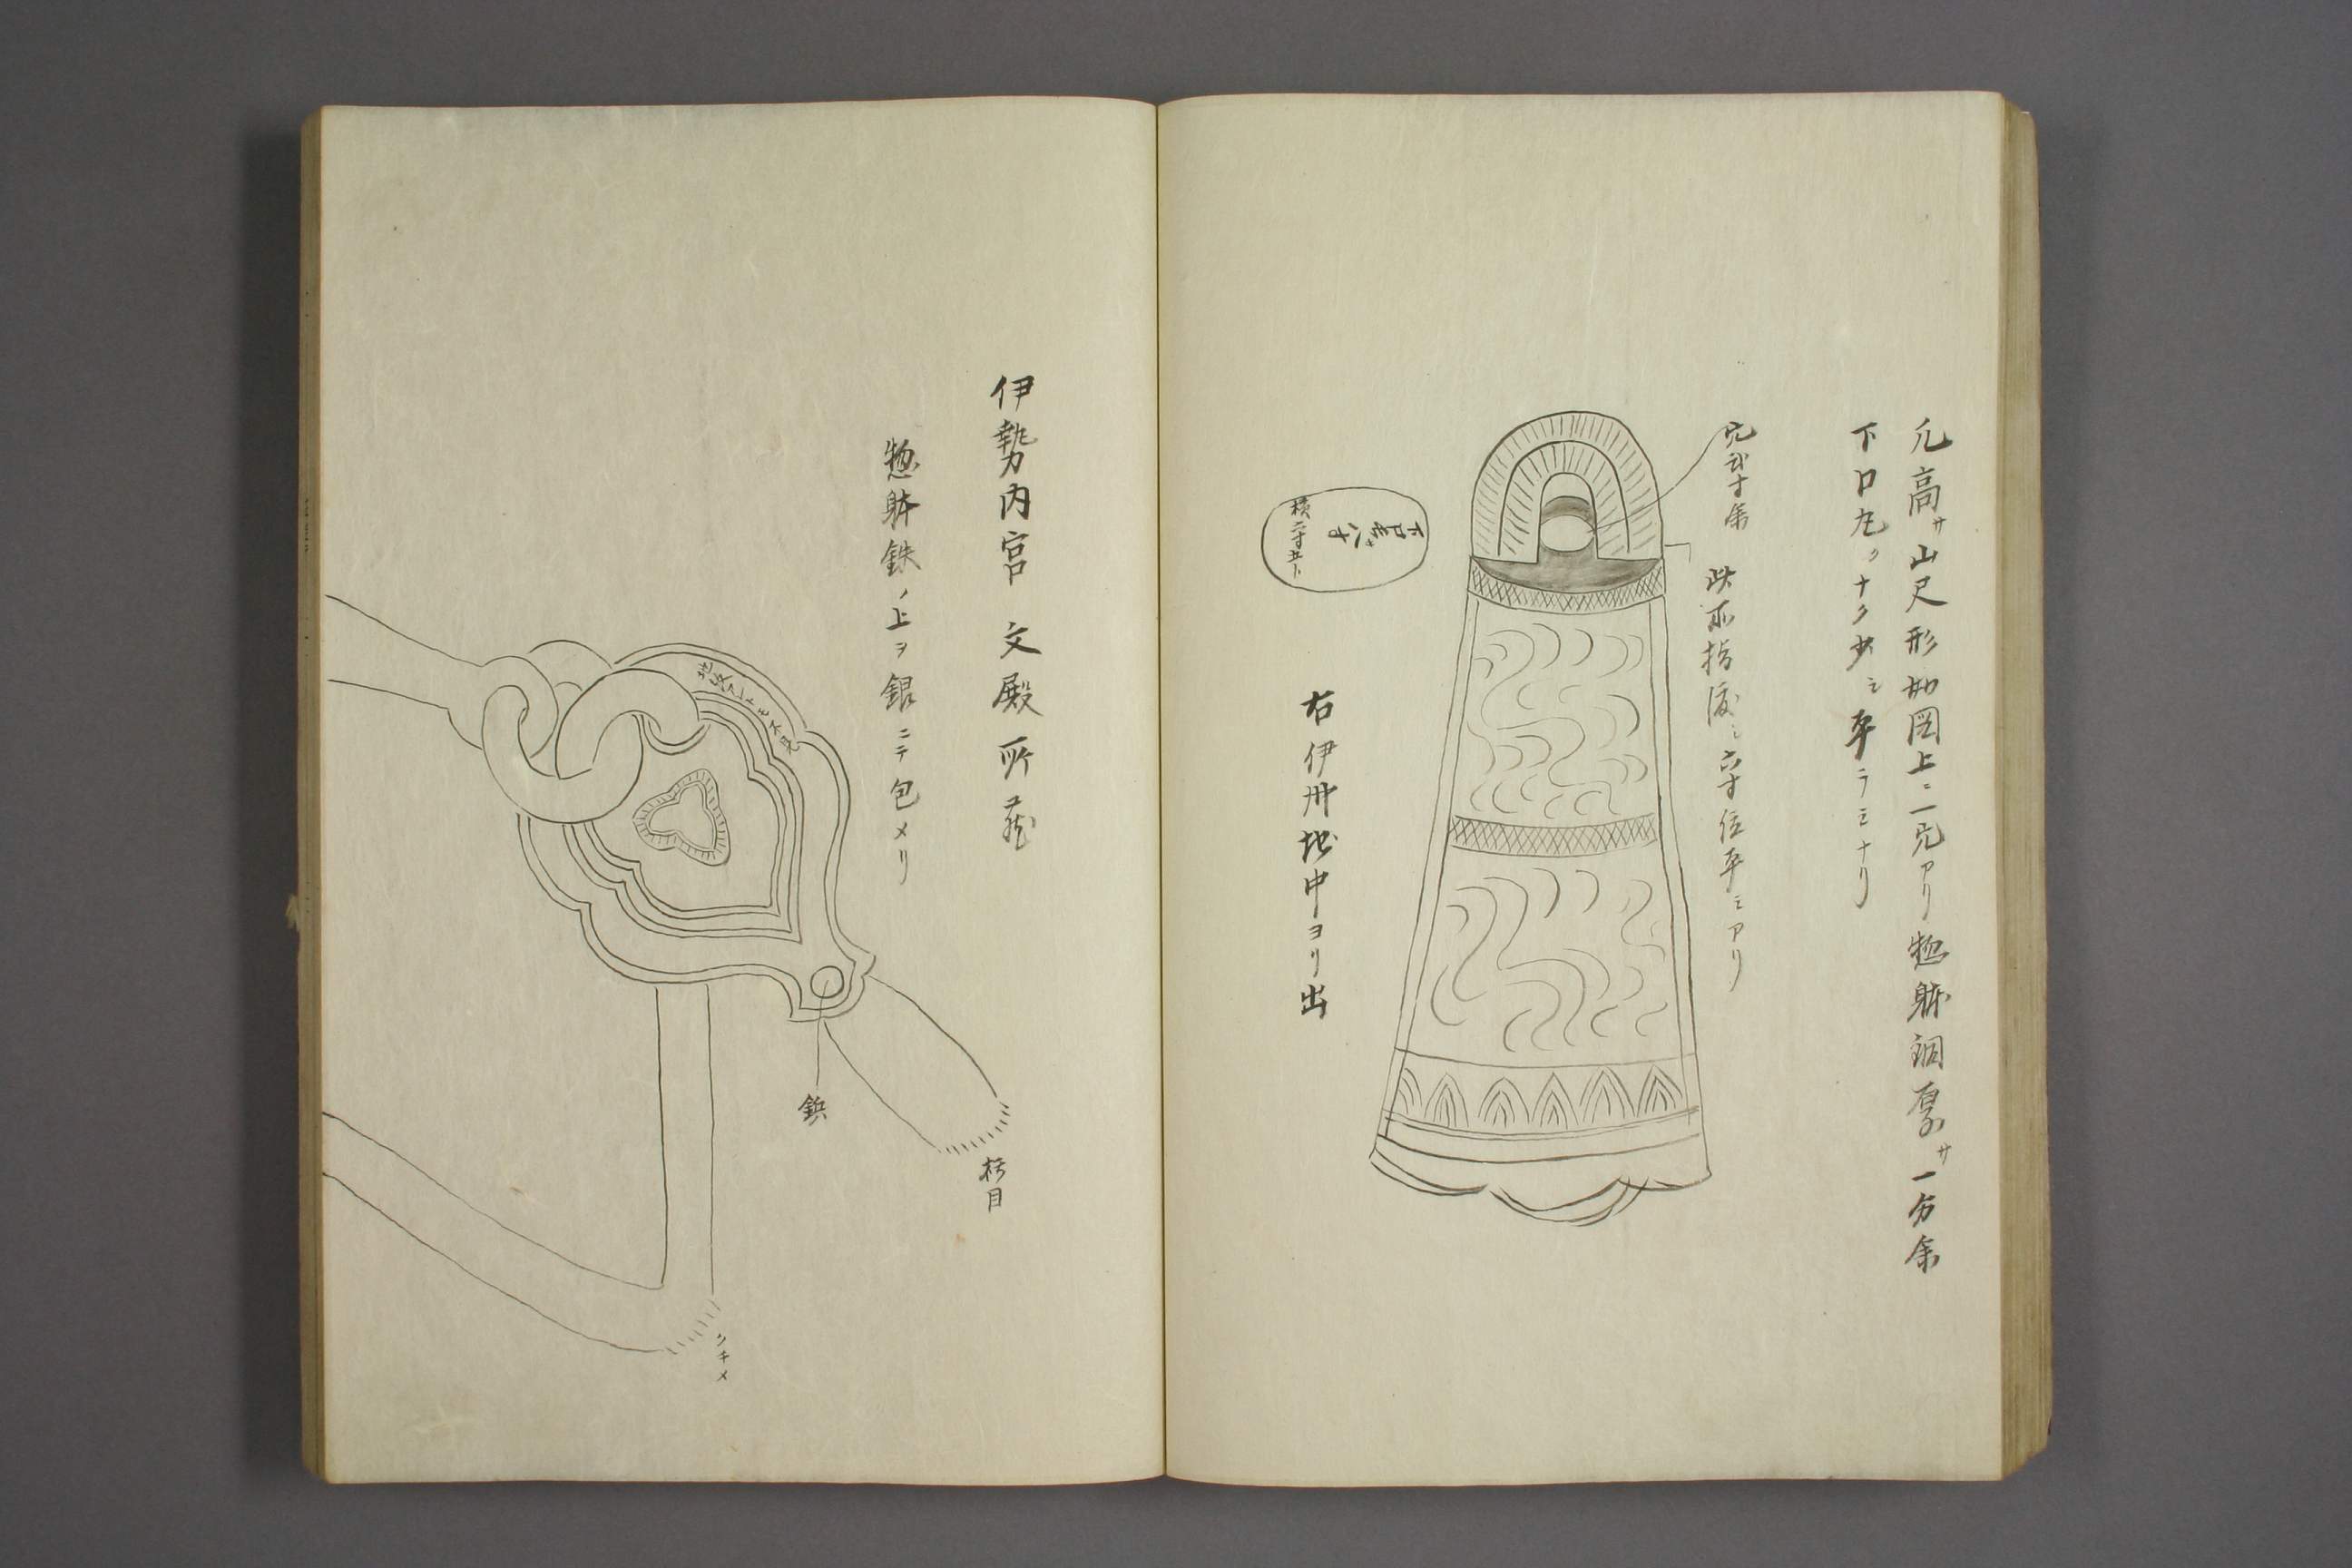 凢高サ山尺形如図上ニ一穴アリ惣躰銅厚サ一分余
下口丸クナク少シ平ラミナリ
穴 寸余
此所指渡シ 寸位平ミアリ
下口 八寸
横 寸五ト
右伊州地中ヨリ出
伊勢内宮 文殿所蔵
惣躰鉄ノ上ヲ銀ニテ包メリ
鋲
折目
クチメ